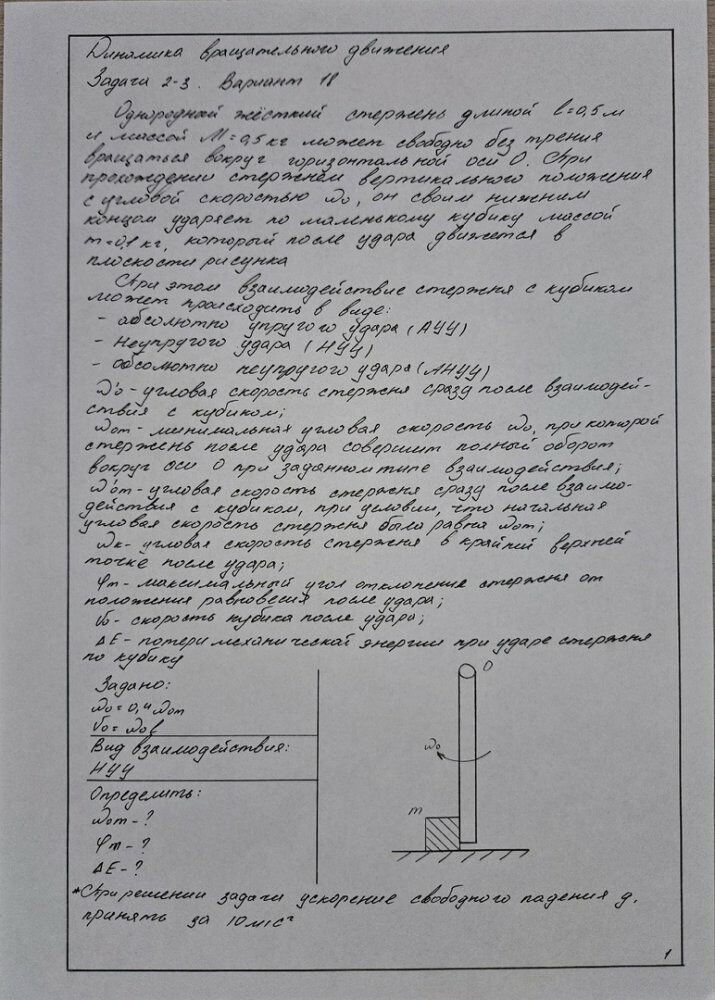 Динамика вращательного движения
Задача 2-3. Вариант 18
Однородный жёсткий стержень длиной l=0,5м
и массой M=0,5 кг может свободно без трения
вращаться вокруг горизонтальной оси О. При
прохождении стержнем вертикального положения
с угловой скоростью ω₀, он своим нижним
концом ударяет по маленькому кубику массой
m=0,1 кг, который после удара движется в
плоскости рисунка
При этом взаимодействие стержня с кубиком
может происходить в виде:
- абсолютно упругого удара (АУУ)
- неупругого удара (НУУ)
- абсолютно неупругого удара (АНУУ)
ω'₀ - угловая скорость стержня сразу после взаимодей-
ствия с кубиком;
ω₀m - минимальная угловая скорость ω₀, при которой
стержень после удара совершит полный оборот
вокруг оси О при заданном типе взаимодействия;
ω'₀m - угловая скорость стержня сразу после взаимо-
действия с кубиком, при условии, что начальная
угловая скорость стержня была равна ω₀m;
ωк - угловая скорость стержня в крайней верхней
точке после удара;
φm - максимальный угол отклонение стержня от
положения равновесия после удара;
V₀ - скорость кубика после удара;
ΔE - потери механической энергии при ударе стержня
по кубику
Задано:
ω₀ = 0,4 ω₀m
V₀ = ω₀l
Вид взаимодействия:
НУУ
Определить:
ω₀m - ?
φm - ?
ΔE - ?
О
ω₀
m
*При решении задачи ускорение свободного падения g,
принять за 10 м/с²
1